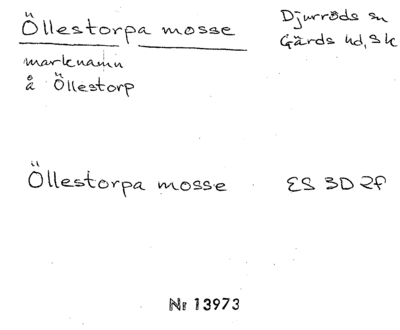 Öllestorpa mosse
Djurröds sn
Gärds hd, Sk
marknamn
å Öllestorp
Öllestorpa mosse
ES 3D 2f
Nr 13973